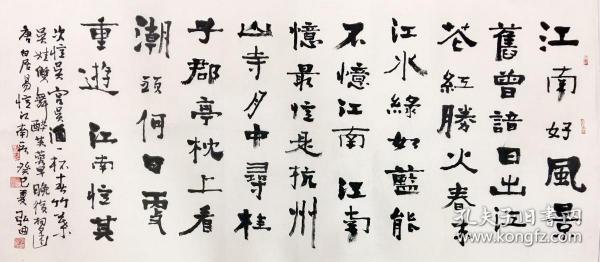 江南好風景
舊曾諳日出江
花紅勝火春來
江水綠如藍能
不憶江南江南
憶最憶是杭州
山寺月中尋桂
子郡亭枕上看
潮頭何日更
重遊江南憶其
次憶吳宮吳酒一杯春竹葉
吳娃雙舞醉芙蓉早晚復相逢
唐白居易憶江南 癸巳夏
孔夫子旧书网
kongfz.com